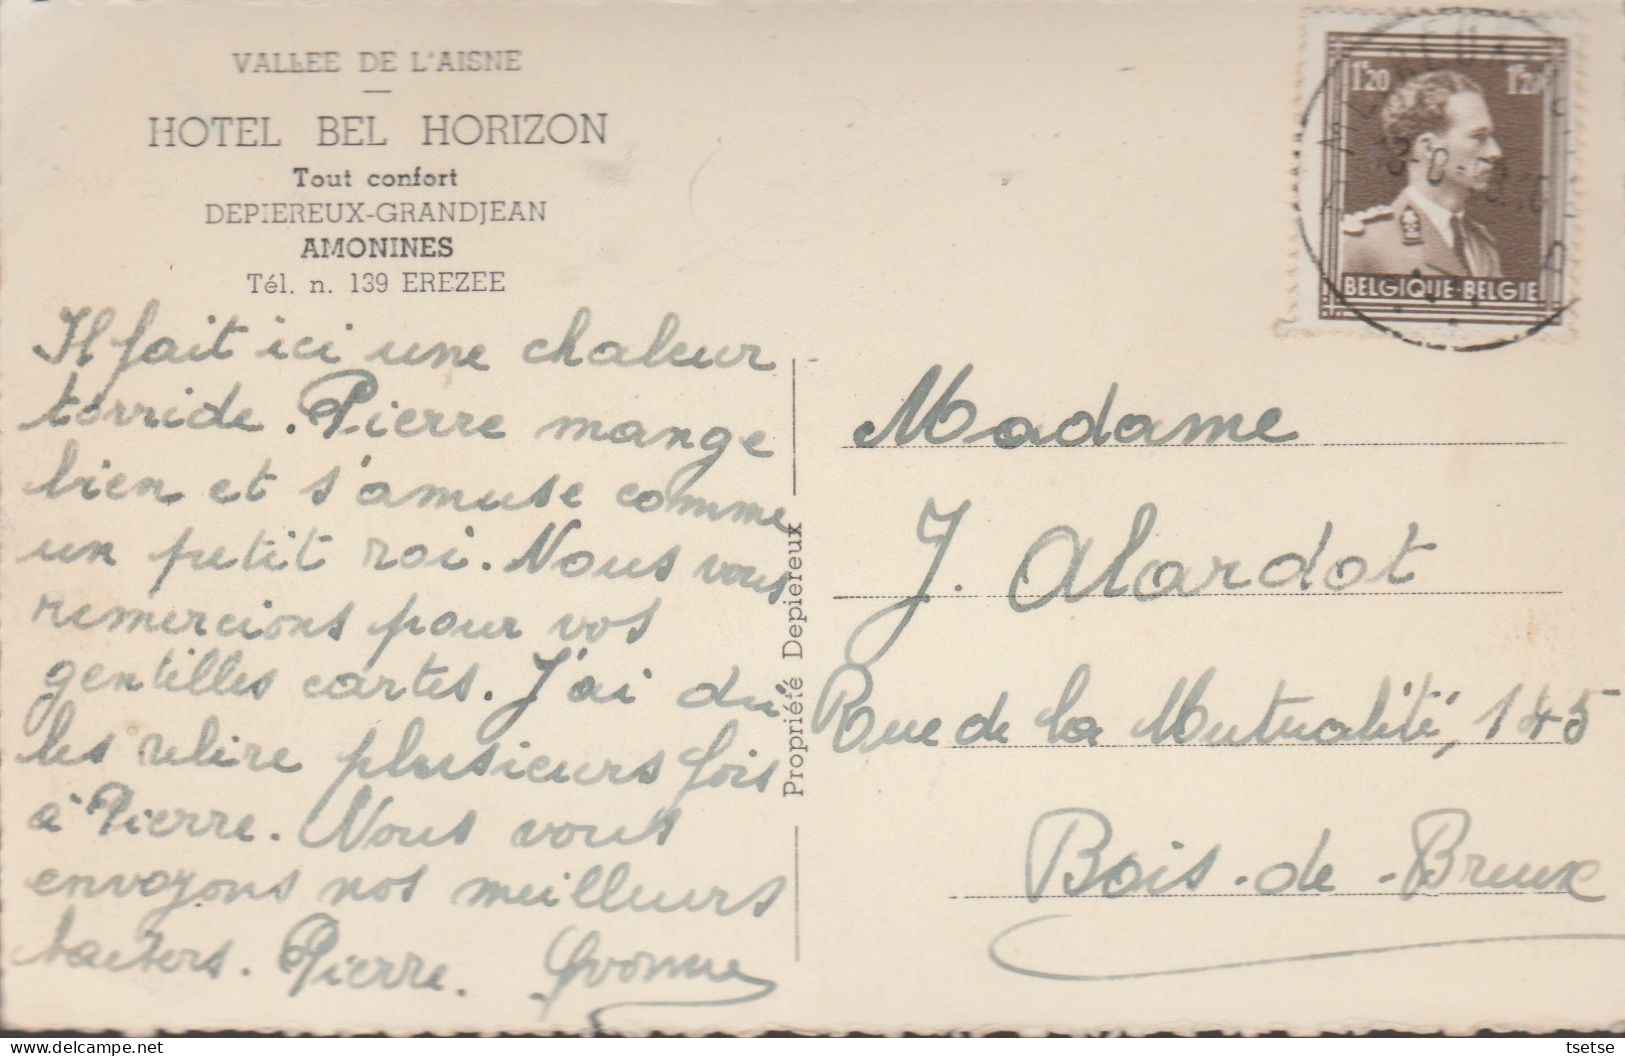 VALLEE DE L'AISNE
HOTEL BEL HORIZON
Tout confort
DEPIEREUX-GRANDJEAN
AMONINES
Tél. n. 139 EREZEE
Il fait ici une chaleur
torride. Pierre mange
bien et s'amuse comme
un petit roi. Nous vous
remercions pour vos
gentilles cartes. J'ai du
les relire plusieurs fois
à Pierre. Nous vous
envoyons nos meilleurs
baisers. Pierre. Yvonne
Propriété Depiereux
1F20 1F20
BELGIQUE-BELGIE
Madame
J. Alardot
Rue de la Mutualité, 145
Bois-de-Breux
tsetse